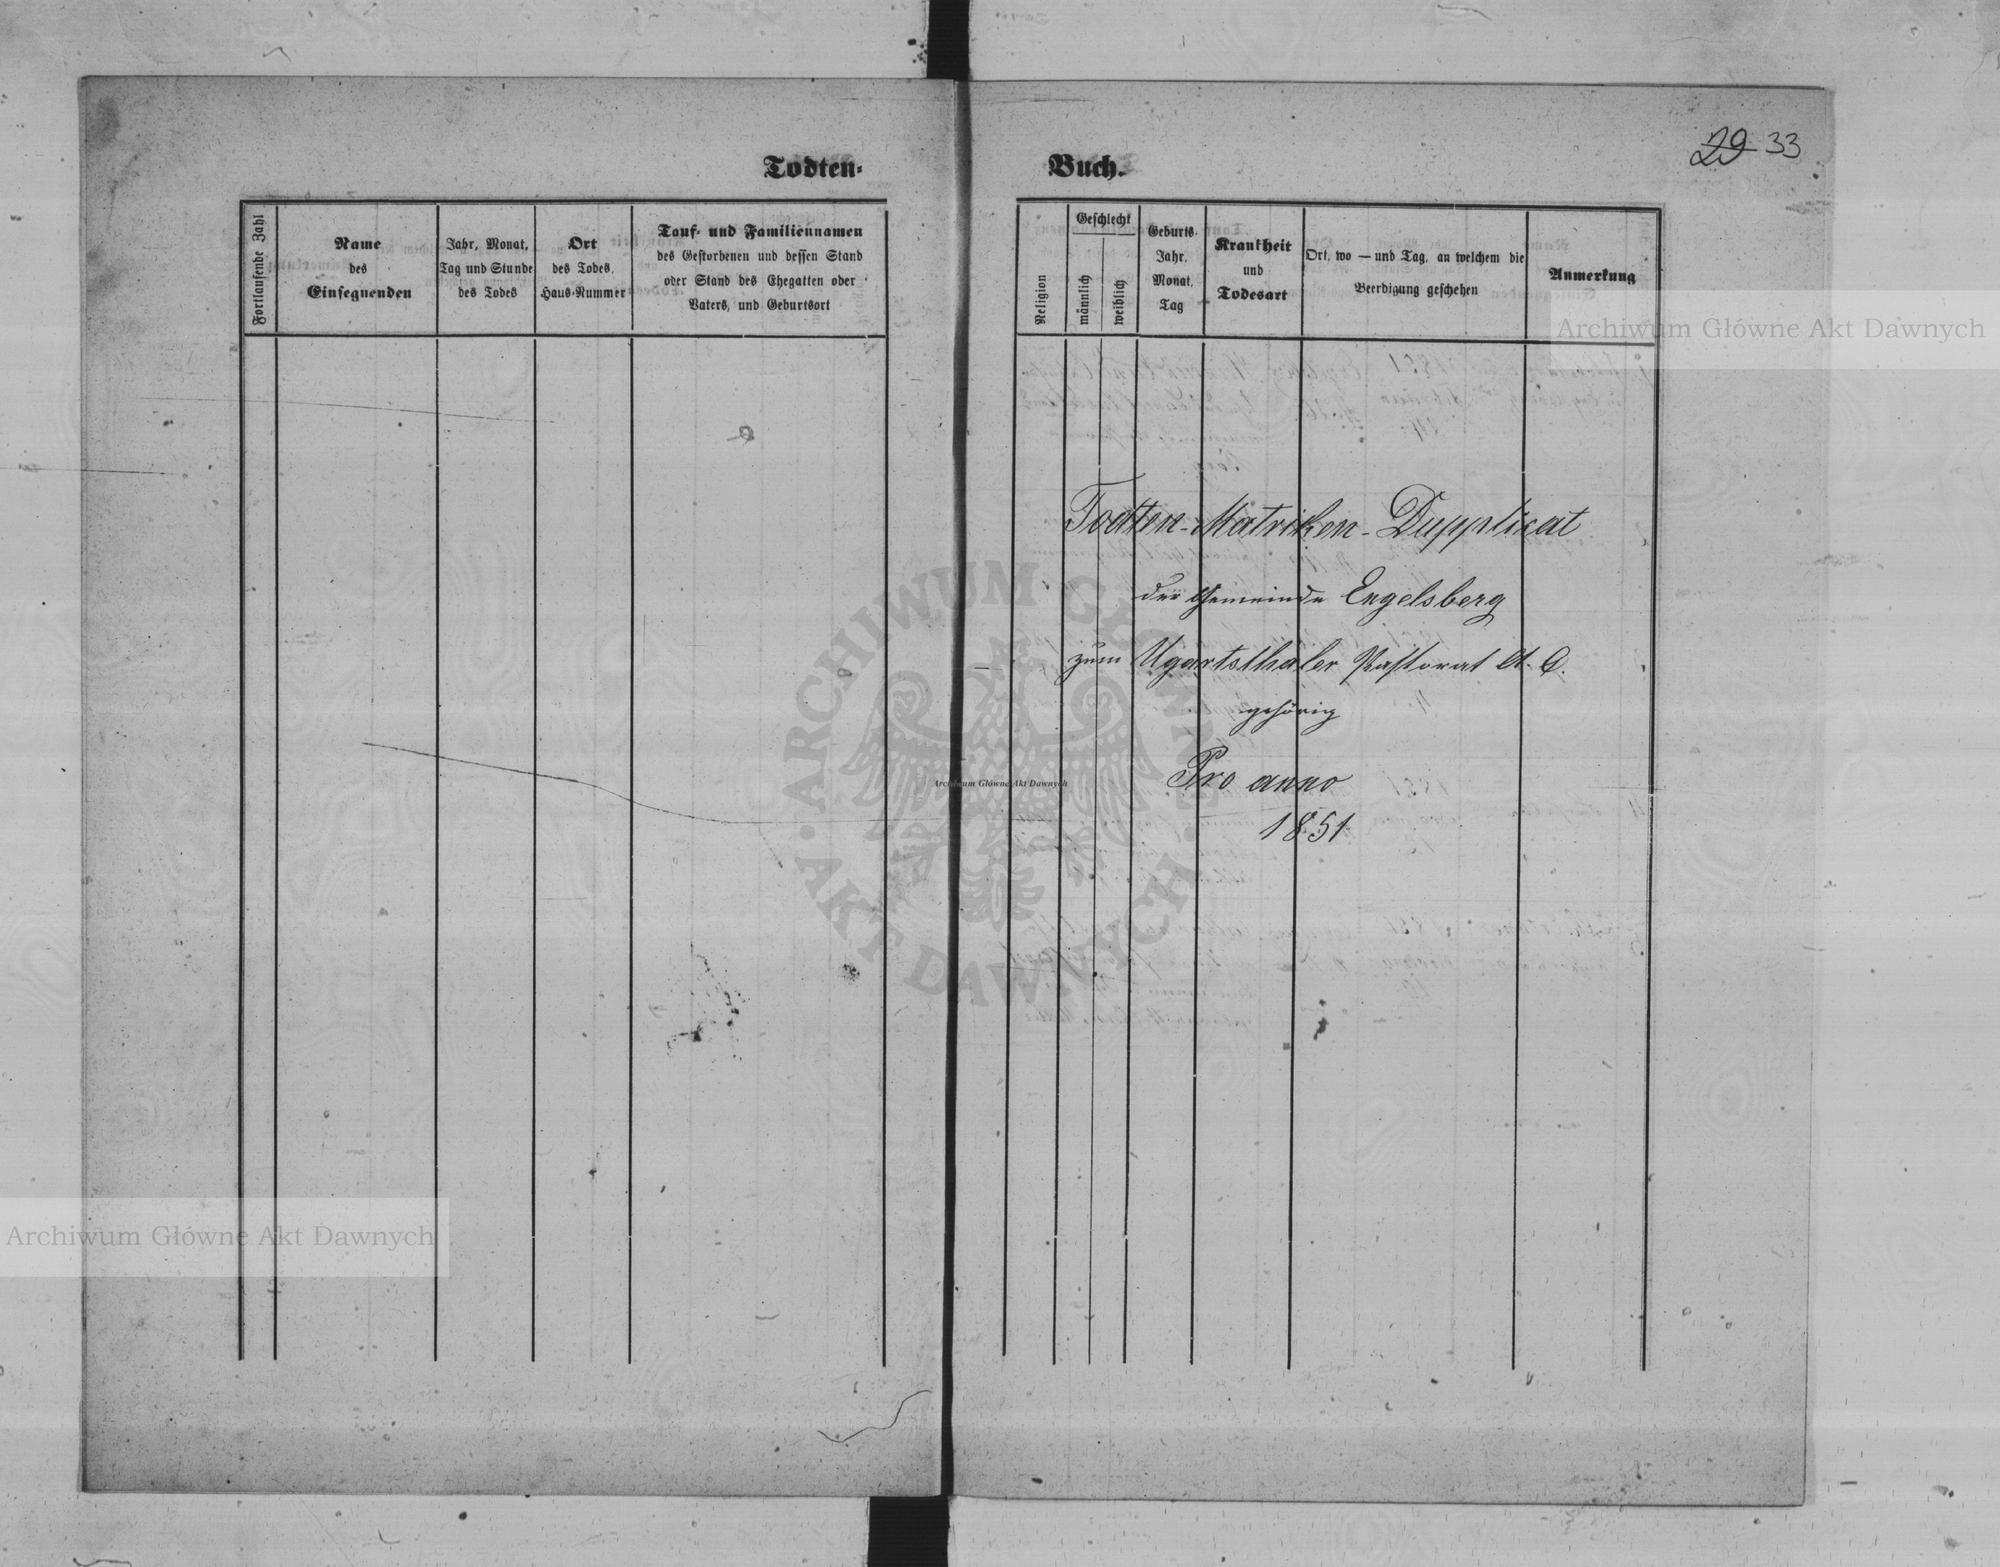 Todten-
Fortlaufende Zahl
Name
des
Einsegnenden
Jahr, Monat,
Tag und Stunde
des Todes
Ort
des Todes,
Haus-Nummer
Tauf- und Familiennamen
des Gestorbenen und dessen Stand
oder Stand des Ehegatten oder
Vaters, und Geburtsort
Buch.
29 33
Religion
Geschlecht
männlich
weiblich
Geburts-
Jahr,
Monat,
Tag
Krankheit
und
Todesart
Ort, wo — und Tag, an welchem die
Beerdigung geschehen
Anmerkung
Todten-Matriken-Dupplicat
der Gemeinde Engelsberg
zum Ugartsthaler Pastorat A. C.
gehörig
Pro anno
1851
Archiwum Główne Akt Dawnych
ARCHIWUM GŁÓWNE
AKT DAWNYCH
Archiwum Główne Akt Dawnych
Archiwum Główne Akt Dawnych